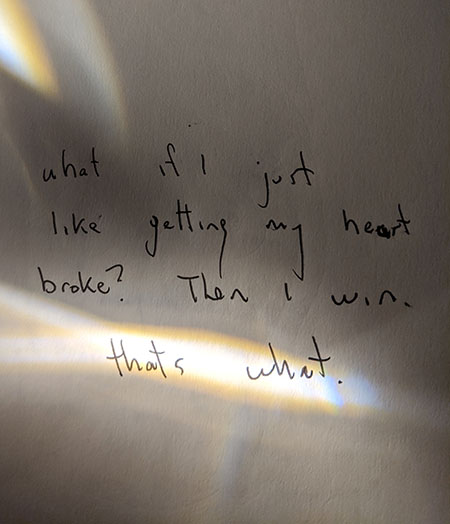 what if I just
like getting my heart
broke? Then I win.
thats what.